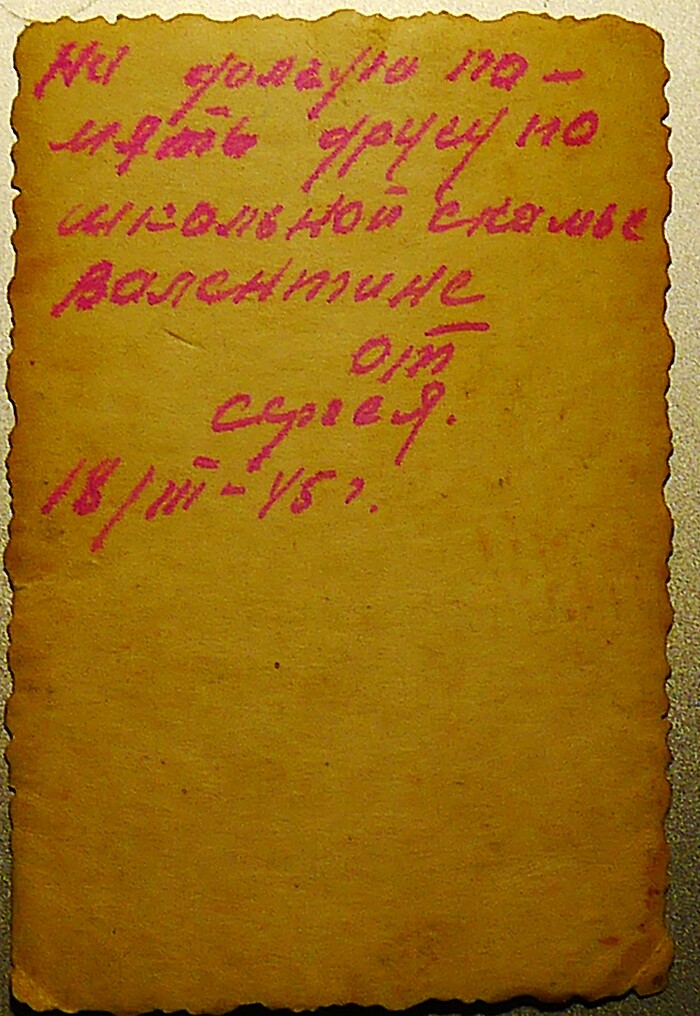 На долгую па-
мять другу по
школьной скамье
Валентине
от
Сергея.
18/III-45 г.